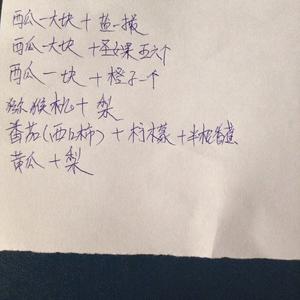 西瓜一大块+盐一撮
西瓜一大块+圣女果五六个
西瓜一块+橙子一个
猕猴桃+梨
番茄(西红柿)+柠檬+半根香蕉
黄瓜+梨